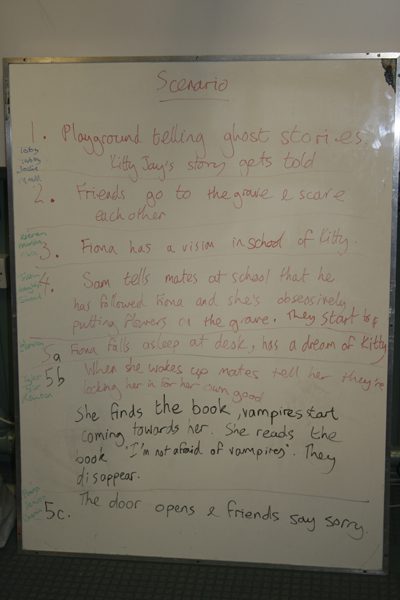 Scenario
1. Playground telling ghost stories.
Kitty Jay's story gets told
2. Friends go to the grave & scare
each other
3. Fiona has a vision in school of Kitty.
4. Sam tells mates at school that he
has followed Fiona and she's obsessively
putting flowers on the grave. They start to
5a Fiona falls asleep at desk, has a dream of Kitty
5b When she wakes up mates tell her they're
locking her in for her own good
She finds the book, vampires start
coming towards her. She reads the
book "I'm not afraid of vampires". They
disappear.
5c. The door opens & friends say sorry.